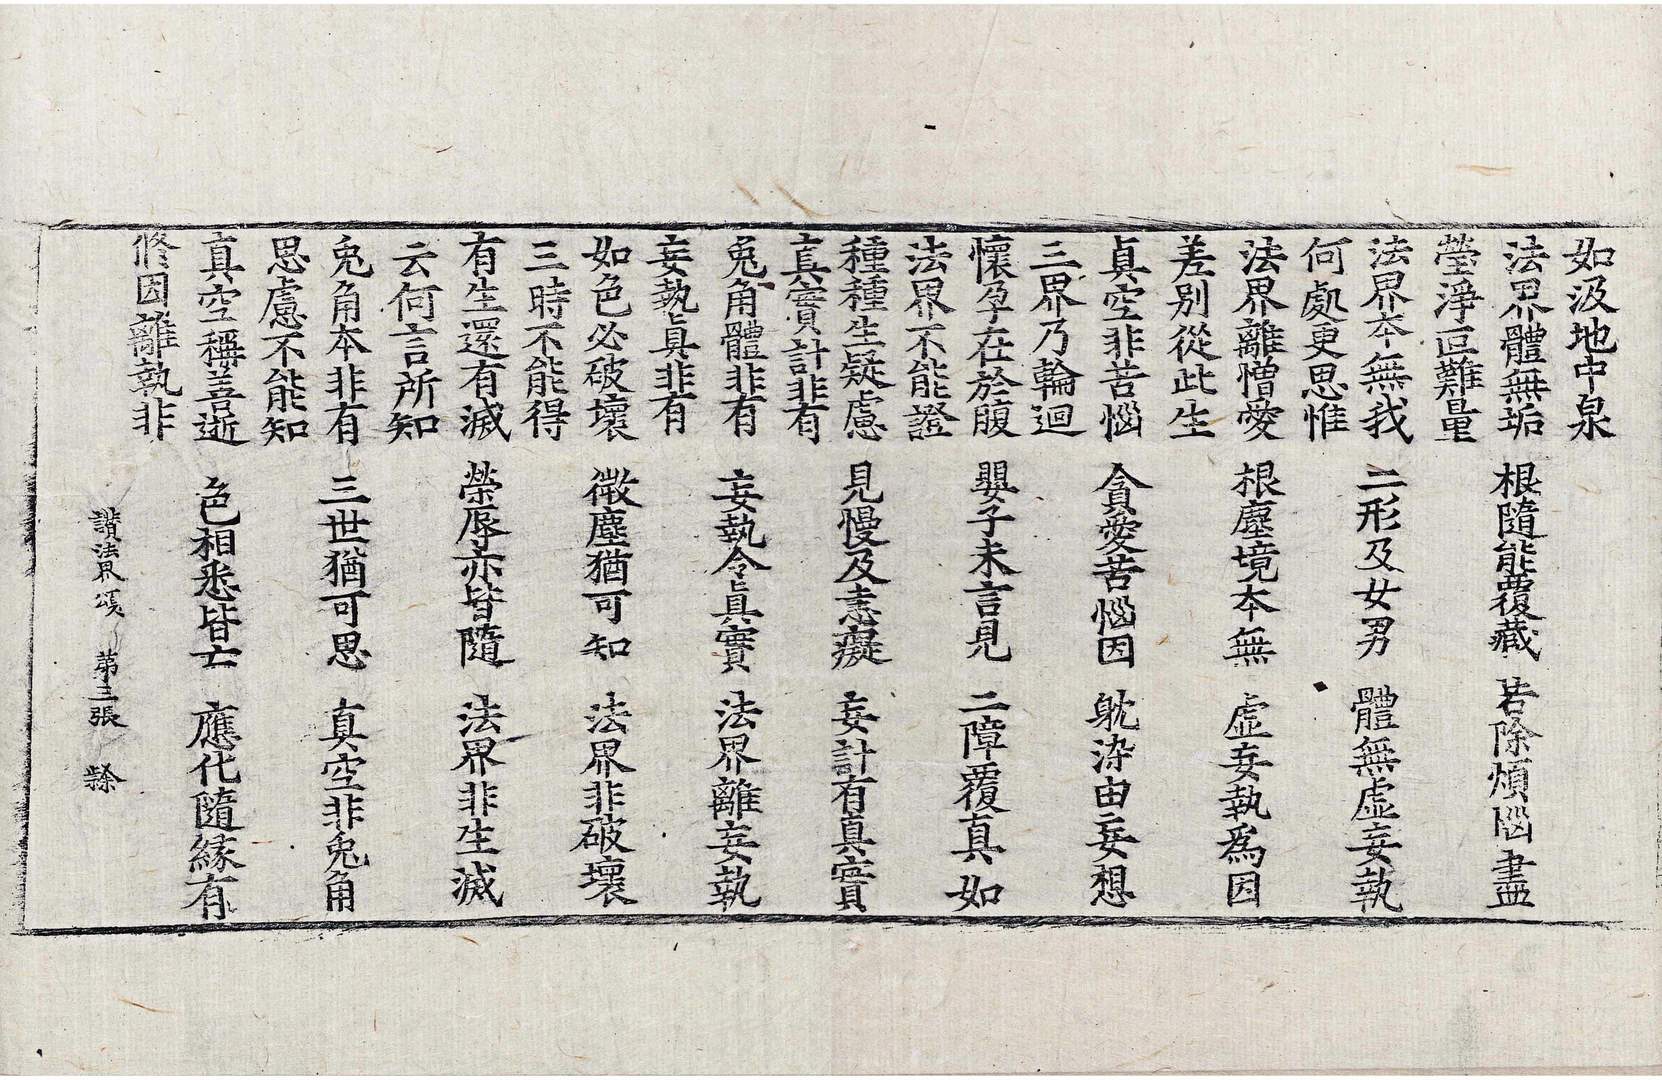 如汲地中泉
法界體無垢 根隨能覆藏 若除煩惱盡
瑩淨叵難量
法界本無我 二形及女男 體無虛妄執
何處更思惟
法界離憎愛 根塵境本無 虛妄執爲因
差別從此生
真空非苦惱 貪愛苦惱因 躭染由妄想
三界乃輪迴
懷孕在於腹 嬰子未言見 二障覆真如
法界不能證
種種生疑慮 見慢及恚癡 妄計有真實
真實計非有
兔角體非有 妄執令真實 法界離妄執
妄執真非有
如色必破壞 微塵猶可知 法界非破壞
三時不能得
有生還有滅 榮辱亦皆隨 法界非生滅
云何言所知
兔角本非有 三世猶可思 真空非兔角
思慮不能知
真空稱善逝 色相悉皆亡 應化隨緣有
修因離執非
讚法界頌 第三張